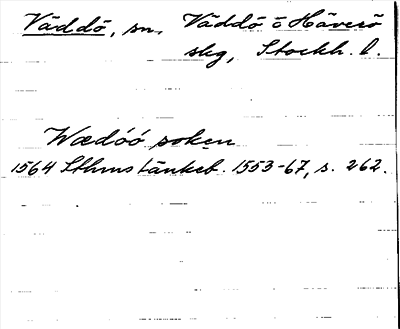 Väddö, sn, Väddö o Häverö
skg, Stockh. l.
Wædöö soken
1564 Sthms tänkeb. 1553-67, s. 262.